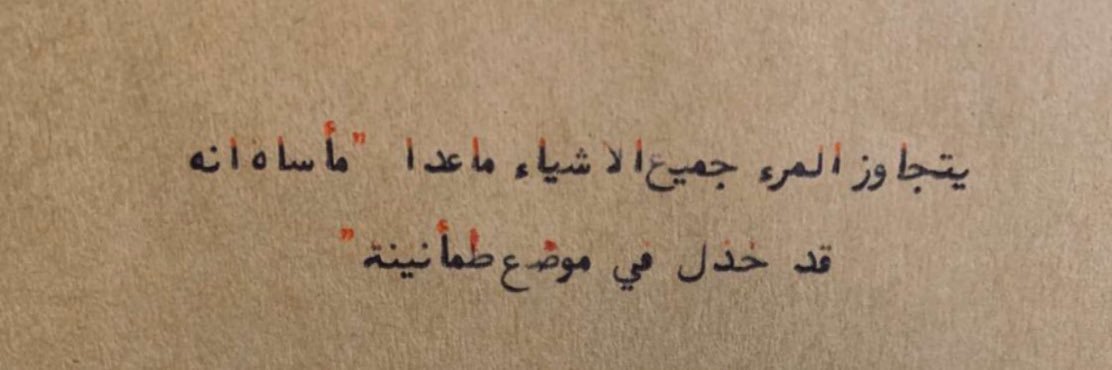 يتجاوز المرء جميع الاشياء ماعدا "مأساه انه
قد خذل في موضع طمأنينة"